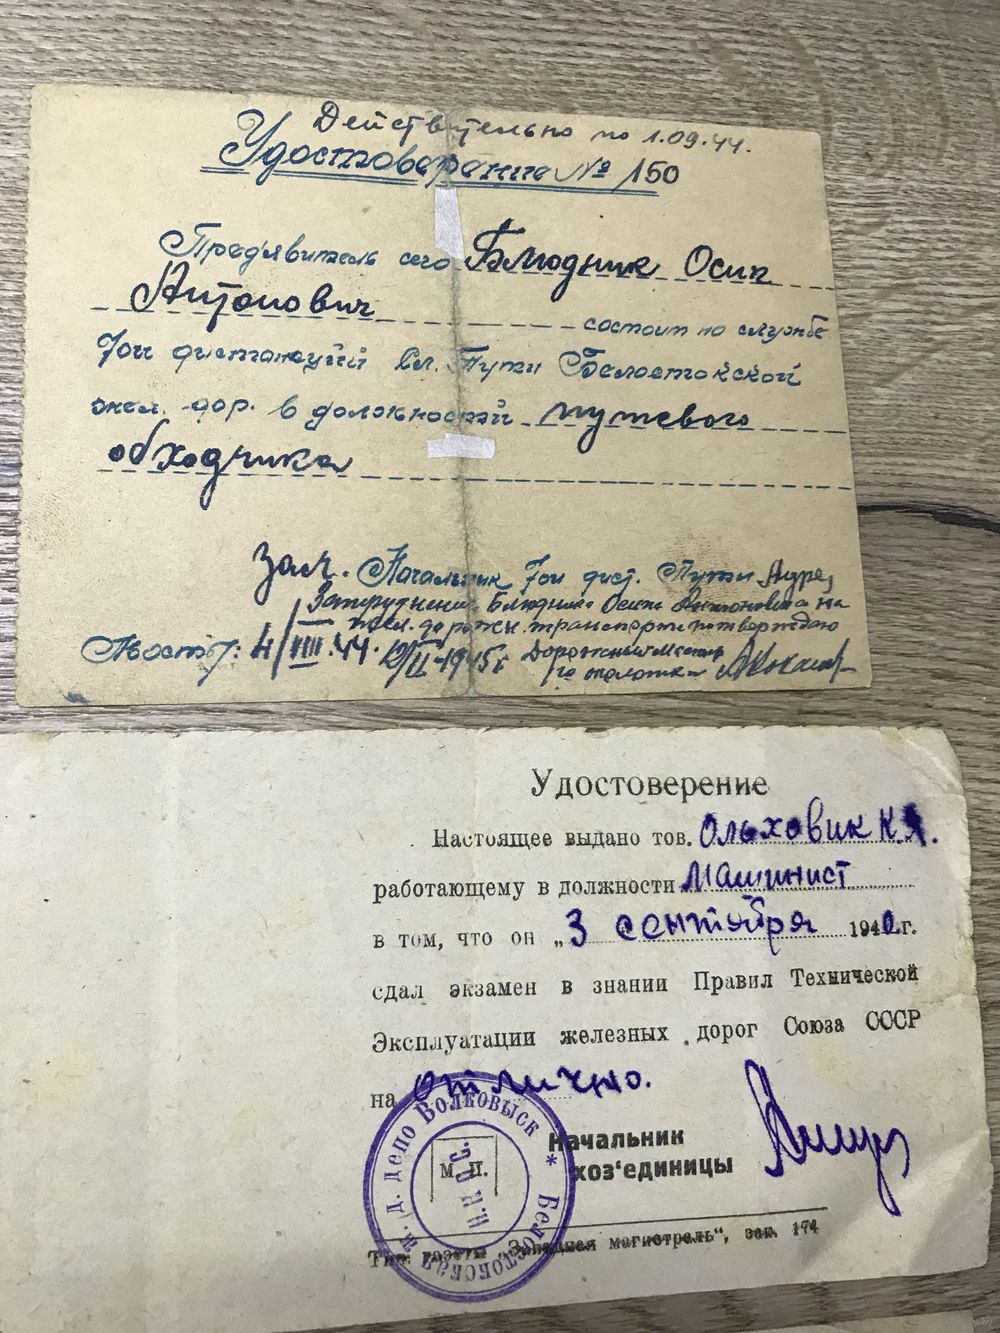 Действительно по 1.09.44.
Удостоверение № 150
Предявитель сего Блюдник Осип
Антонович состоит на службе
7ой дистанций сл. Пути Белостокской
жел. дор. в должностй путевого
обходчика
Зам. Начальник 7ой дист. Пути
Блюдника Осипа Антоновича на
транспорте потверждаю
Мосты: 4/VIII.44. 12/II-1945г Дорожный мастер
околотка
Удостоверение
Настоящее выдано тов. Ольховик К.Я.
работающему в должности Машинист
в том, что он „3 сентября 1940г.
сдал экзамен в знании Правил Технической
Эксплуатации железных дорог Союза СССР
на отлично.
Начальник
хоз'единицы
м.п.
ж. д. депо Волковыск * Белостокская
Н.К.П.С.
Тип. газеты „Западная магистраль“, зак. 174